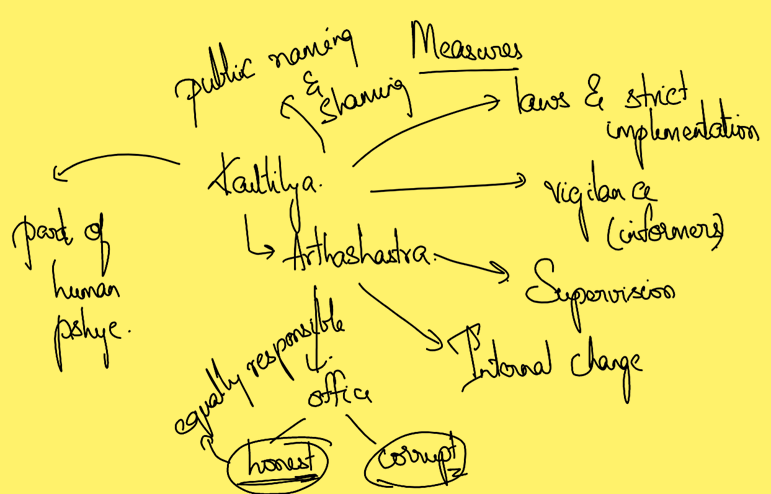 Measures
public naming
&
Shaming
laws & strict
implementation
Kautilya.
vigilance
(informers)
part of
human
pshye.
Arthashastra.
Supervision
equally responsible
Internal change
office
honest
corrupt